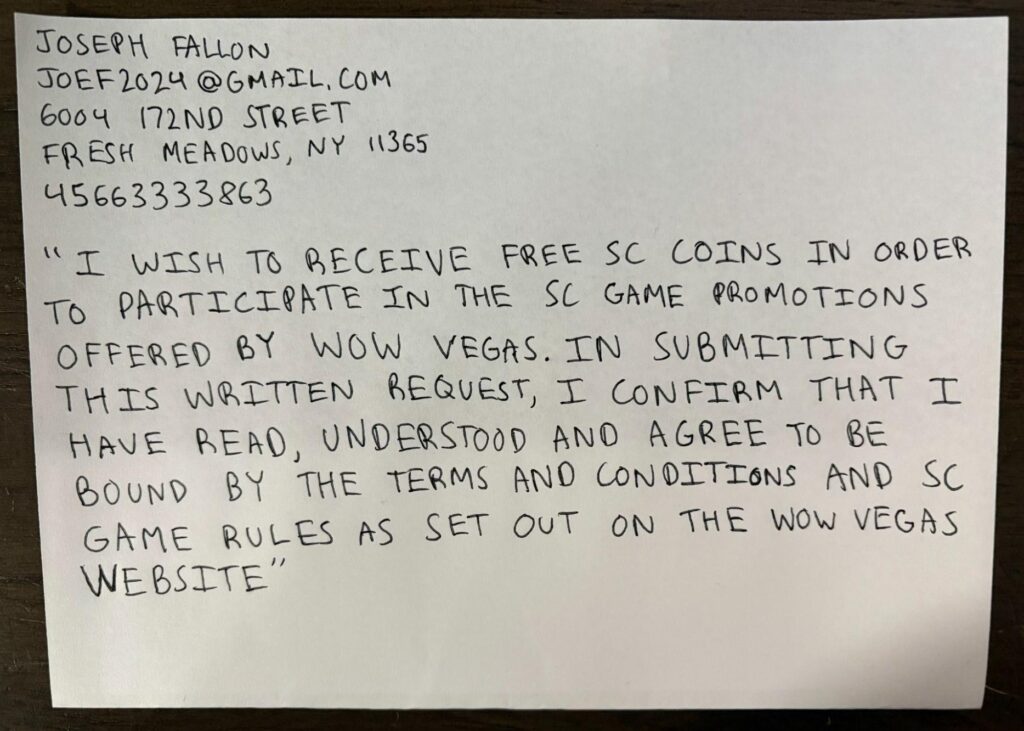 JOSEPH FALLON
JOEF2024@GMAIL.COM
6004 172ND STREET
FRESH MEADOWS, NY 11365
45663333863
"I WISH TO RECEIVE FREE SC COINS IN ORDER
TO PARTICIPATE IN THE SC GAME PROMOTIONS
OFFERED BY WOW VEGAS. IN SUBMITTING
THIS WRITTEN REQUEST, I CONFIRM THAT I
HAVE READ, UNDERSTOOD AND AGREE TO BE
BOUND BY THE TERMS AND CONDITIONS AND SC
GAME RULES AS SET OUT ON THE WOW VEGAS
WEBSITE"